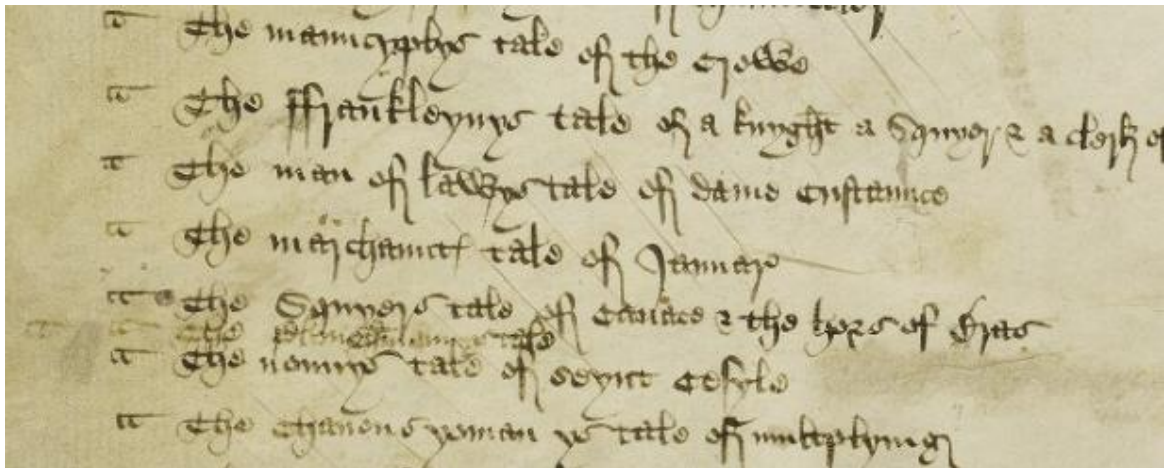 The mauncyphys tale of the Crowe
The ffrankleynys tale of a knyght a Squyer & a clerk of
The man of lawys tale of dame Custaunce
The marchauntes tale of Januar
The Squyers tale of Canace & the hors of Bras
The tale
The nonnys tale of seynt Cesyle
The Chanons yeman ys tale of multyplyyng